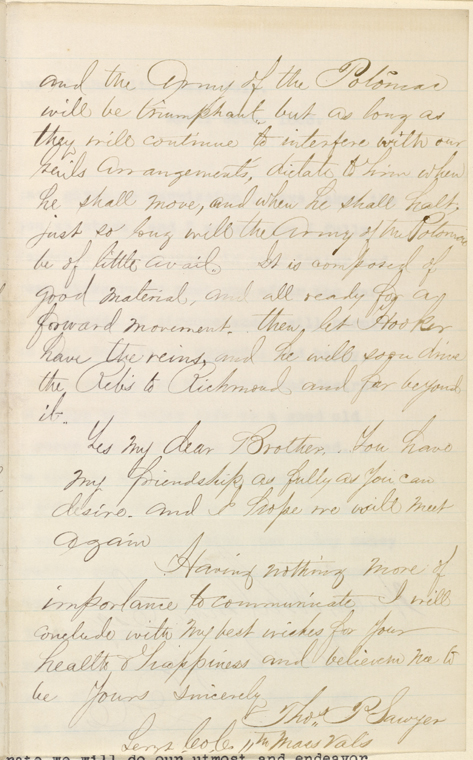 and the Army of the Potomac
will be triumphant, but as long as
they will continue to interfere with our
arrangements, dictate to him when
he shall move, and when he shall halt,
just so long will the Army of the Potomac
be of little avail. It is composed of
good material, and all ready for a
forward movement. then, let Hooker
have the reins, and he will soon drive
the Rebs to Richmond and far beyond
it.
Yes my dear Brother. You have
my friendship, as fully as you can
desire. and I hope we will meet
again
Having nothing more of
importance to communicate I will
conclude with my best wishes for your
health & happiness and believe me to
be Yours Sincerely
Thos. P. Sawyer
Sergt Co C 11th Mass Vols
we will do our utmost and endeavor